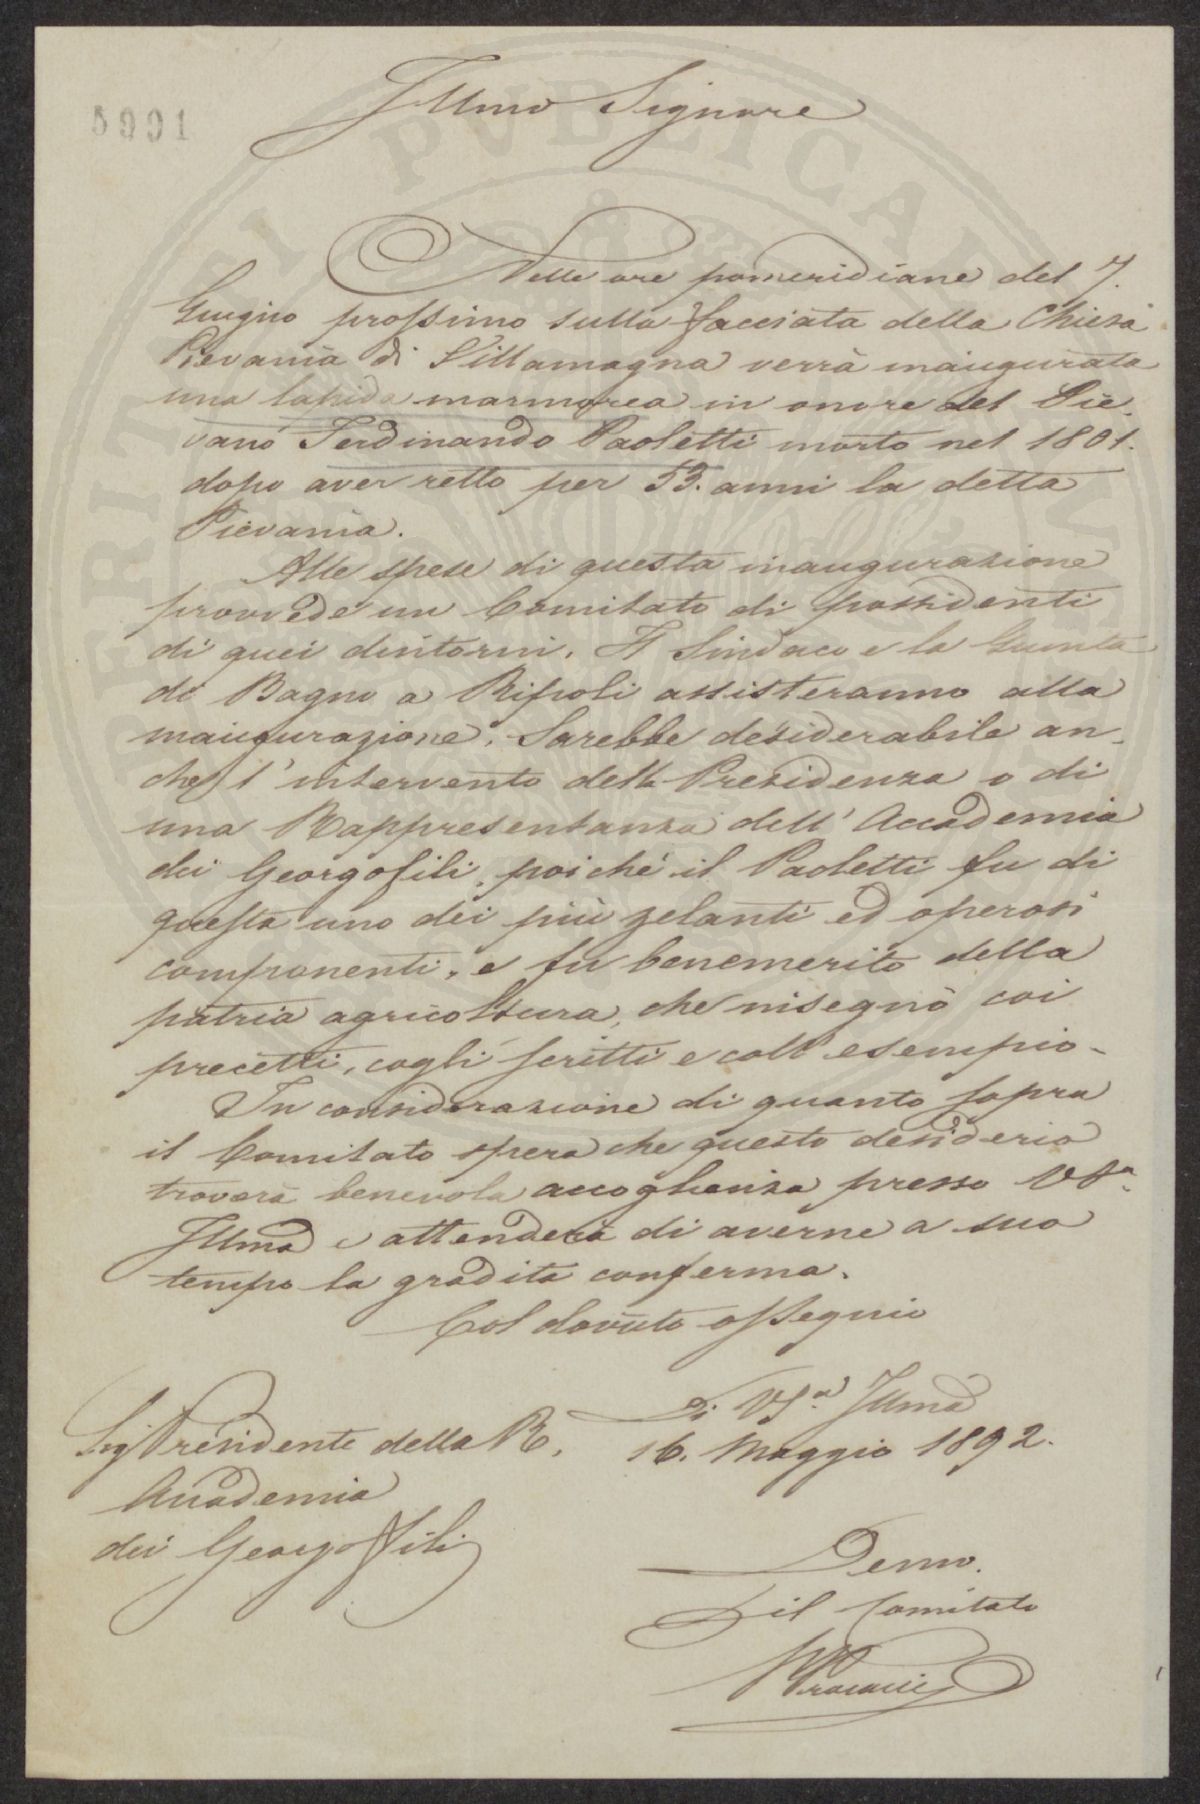 5991
Illmo Signore
Nelle ore pomeridiane del 7.
Giugno prossimo sulla facciata della Chiesa
Pievania di Villamagna verrà inaugurata
una lapide marmorea in onore del Pie-
vano Ferdinando Paoletti morto nel 1801.
dopo aver retto per 53. anni la detta
Pievania.
Alle spese di questa inaugurazione
provvede un Comitato di possidenti
di quei dintorni. Il Sindaco e la Giunta
di Bagno a Ripoli assisteranno alla
inaugurazione. Sarebbe desiderabile an-
che l'intervento della Presidenza o di
una Rappresentanza dell'Accademia
dei Georgofili, poiché il Paoletti fu di
questa uno dei più zelanti ed operosi
componenti, e fu benemerito della
patria agricoltura, che insegnò coi
precetti, cogli scritti e coll'esempio.
In considerazione di quanto sopra
il Comitato spera che questo desiderio
troverà benevola accoglienza presso VSa.
Illma e attenderà di averne a suo
tempo la gradita conferma.
Col dovuto ossequio
Di VS.a Illma
16. Maggio 1892.
Sig Presidente della R.
Accademia
dei Georgofili
Devmo.
Pil Comitato